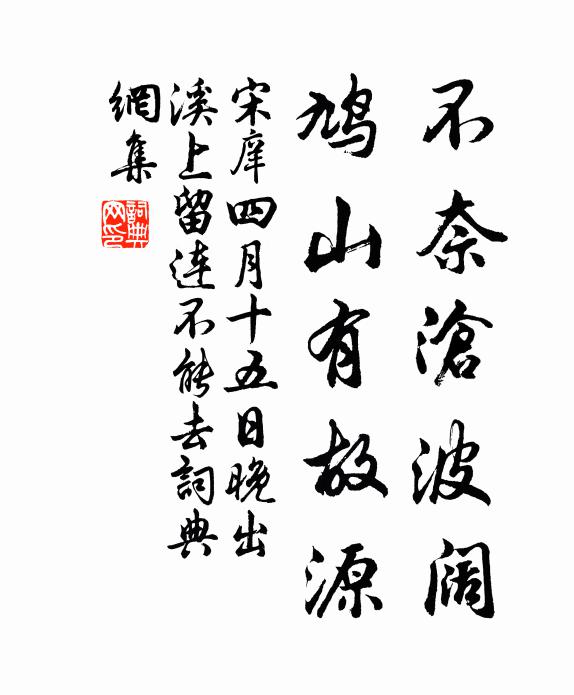 不奈滄波阔
鸠山有故源
宋庠四月十五日晚出
溪上留連不能去詞典
網集
詞典網印